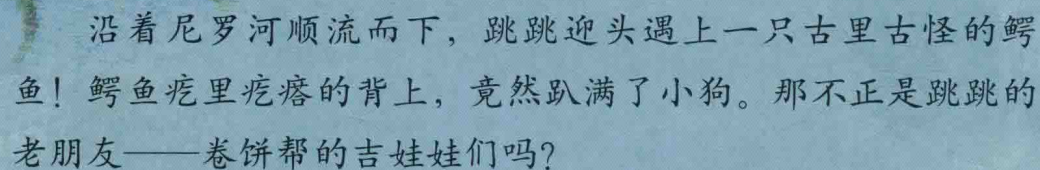 沿着尼罗河顺流而下，跳跳迎头遇上一只古里古怪的鳄
鱼！鳄鱼疙里疙瘩的背上，竟然趴满了小狗。那不正是跳跳的
老朋友——卷饼帮的吉娃娃们吗？